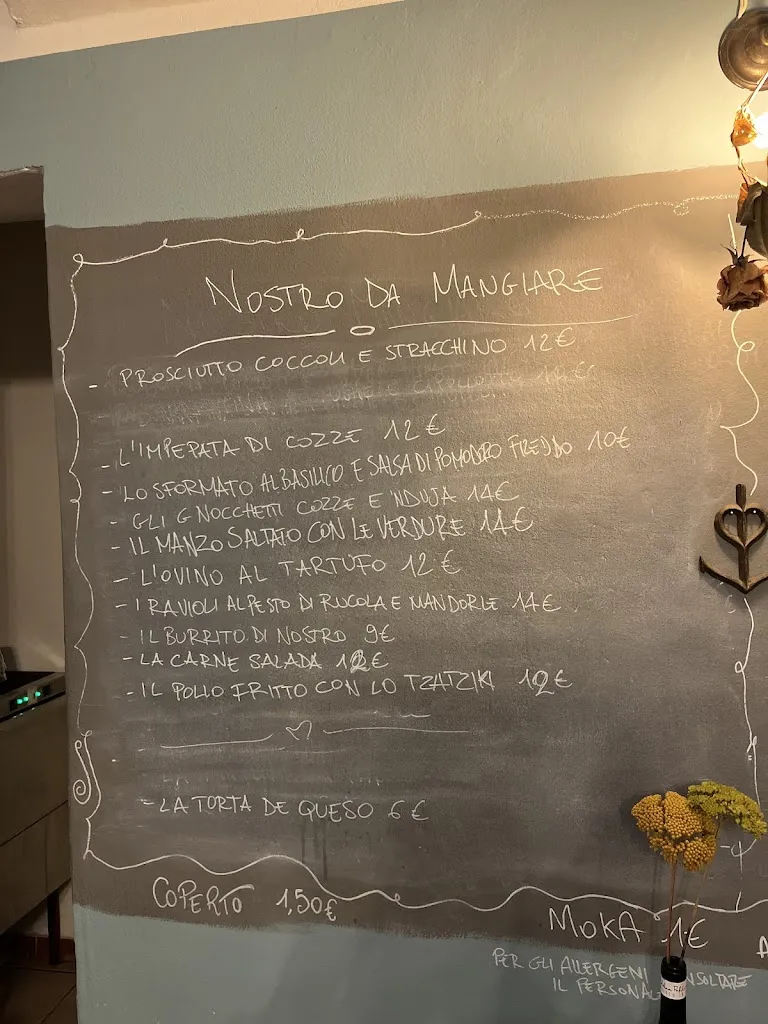 NOSTRO DA MANGIARE
- PROSCIUTTO COCCOLI E STRACCHINO 12€
- L'IMPEPATA DI COZZE 12€
- LO SFORMATO AL BASILICO E SALSA DI POMODORO FREDDO 10€
- GLI GNOCCHETTI COZZE E 'NDUJA 14€
- IL MANZO SALTATO CON LE VERDURE 14€
- L'OVINO AL TARTUFO 12€
- I RAVIOLI AL PESTO DI RUCOLA E MANDORLE 14€
- IL BURRITO DI NOSTRO 9€
- LA CARNE SALADA 12€
- IL POLLO FRITTO CON LO TZATZIKI 12€
- LA TORTA DE QUESO 6€
COPERTO 1,50€
MOKA 1€
PER GLI ALLERGENI
IL PERSONAL